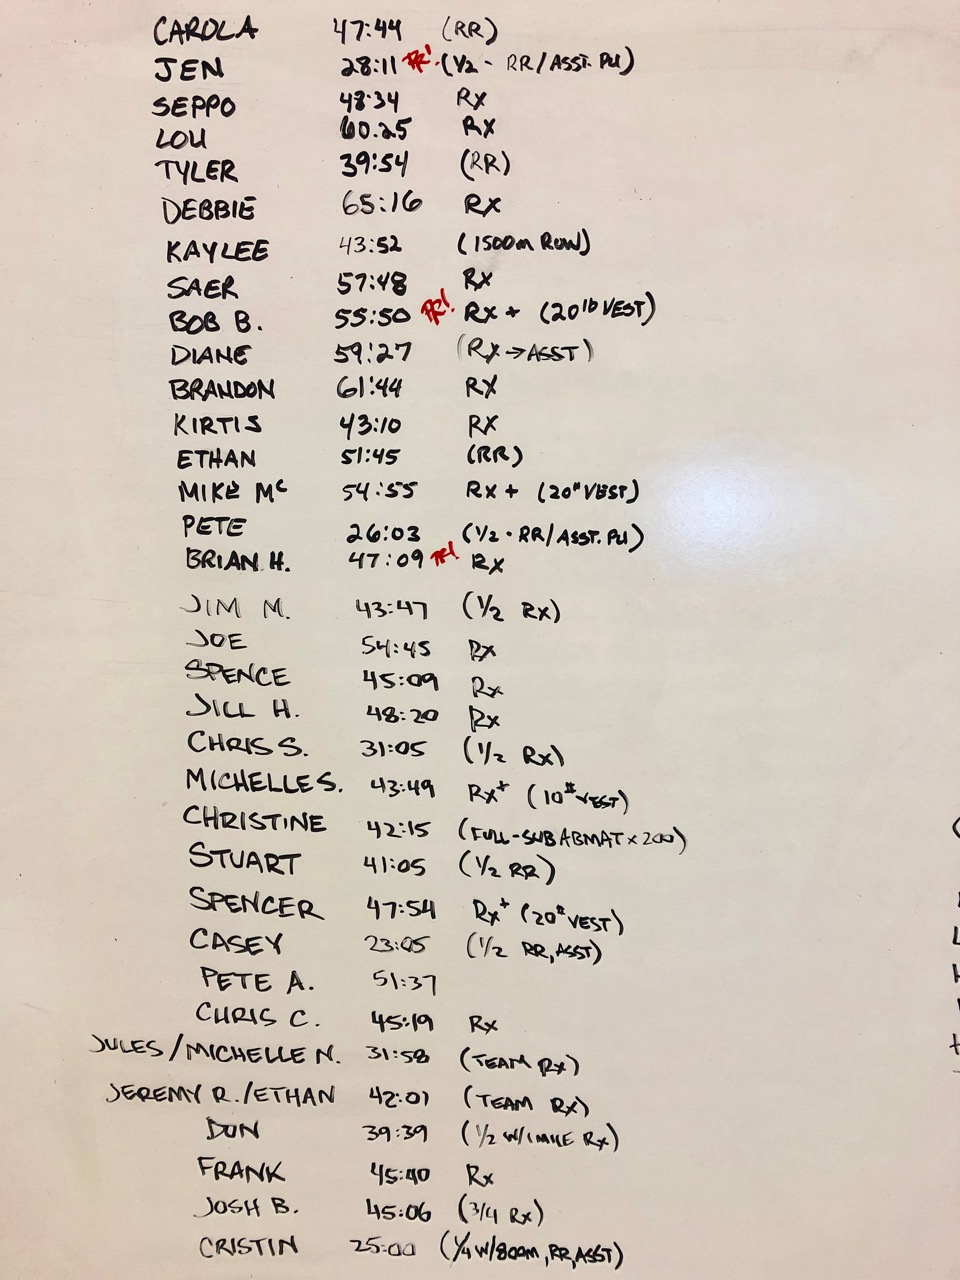 CAROLA 47:44 (RR)
JEN 28:11 PR! (1/2 - RR/ASST. PU)
SEPPO 48:34 Rx
LOU 60:25 Rx
TYLER 39:54 (RR)
DEBBIE 65:16 Rx
KAYLEE 43:52 (1500m ROW)
SAER 57:48 Rx
BOB B. 55:50 PR! Rx + (20lb VEST)
DIANE 59:27 (Rx → ASST)
BRANDON 61:44 Rx
KIRTIS 43:10 Rx
ETHAN 51:45 (RR)
MIKE Mc 54:55 Rx + (20# VEST)
PETE 26:03 (1/2 - RR/ASST. PU)
BRIAN H. 47:09 PR! Rx
JIM M. 43:47 (1/2 Rx)
JOE 54:45 Rx
SPENCE 45:09 Rx
JILL H. 48:20 Rx
CHRIS S. 31:05 (1/2 Rx)
MICHELLE S. 43:49 Rx+ (10# VEST)
CHRISTINE 42:15 (FULL-SUB ABMAT x 200)
STUART 41:05 (1/2 RR)
SPENCER 47:54 Rx+ (20# VEST)
CASEY 23:05 (1/2 RR, ASST)
PETE A. 51:37
CHRIS C. 45:19 Rx
JULES/MICHELLE N. 31:58 (TEAM Rx)
JEREMY R./ETHAN 42:01 (TEAM Rx)
DON 39:39 (1/2 W/1 MILE Rx)
FRANK 45:40 Rx
JOSH B. 45:06 (3/4 Rx)
CRISTIN 25:00 (1/4 W/800m, RR, ASST)